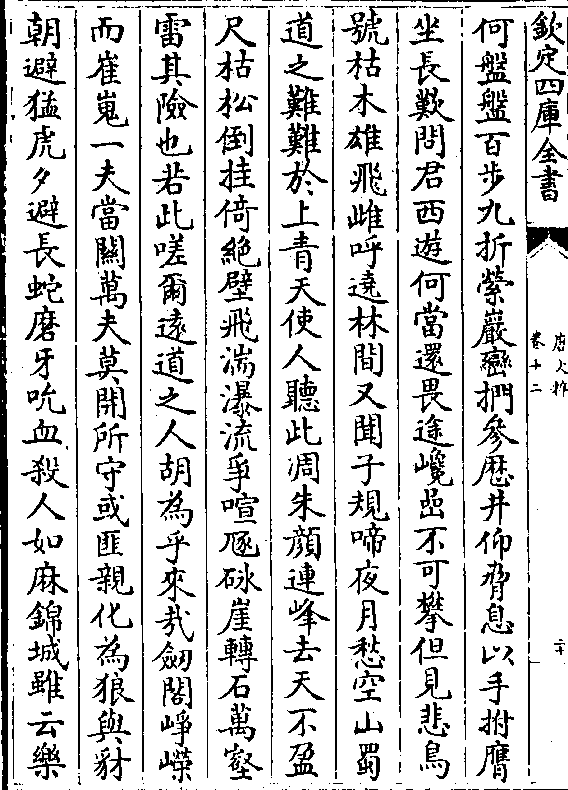 欽定四庫全書
唐文粹
卷十二
二十
何盤盤百步九折縈巖巒捫參歷井仰脅息以手拊膺
坐長歎問君西遊何當還畏途巉嵒不可攀但見悲鳥
號枯木雄飛雌呼遶林間又聞子規啼夜月愁空山蜀
道之難難於上青天使人聽此凋朱顔連峰去天不盈
尺枯松倒挂倚絶壁飛湍瀑流爭喧豗砯崖轉石萬壑
雷其險也若此嗟爾遠道之人胡為乎來哉劒閣崢嶸
而崔嵬一夫當關萬夫莫開所守或匪親化為狼與豺
朝避猛虎夕避長蛇磨牙吮血殺人如麻錦城雖云樂